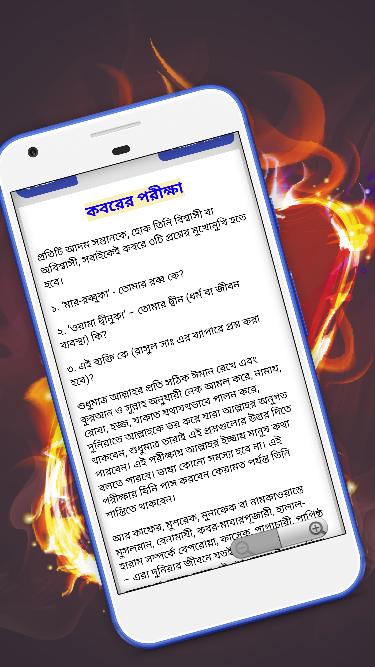 কবরের পরীক্ষা
প্রতিটি আদম সন্তানকে, হোক তিনি বিশ্বাসী বা
অবিশ্বাসী, সবাইকেই কবরে ৩টি প্রশ্নের মুখোমুখি হতে
হবে।
১. 'মার-রব্বুকা' - তোমার রব্ব কে?
২. 'ওয়ামা দ্বীনুকা' – তোমার দ্বীন (ধর্ম বা জীবন
ব্যবস্থা) কি?
৩. এই ব্যক্তি কে (রাসুল সাঃ এর ব্যাপারে প্রশ্ন করা
হবে)?
শুধুমাত্র আল্লাহর প্রতি সঠিক ঈমান রেখে এবং
কুরআন ও সুন্নাহ অনুযায়ী নেক আমল করে, নামায,
রোযা, হজ্জ, যাকাত যথাযথভাবে পালন করে,
দুনিয়াতে আল্লাহকে ভয় করে যারা আল্লাহর অনুগত
থাকবেন, শুধুমাত্র তারাই এই প্রশ্নগুলোর উত্তর দিতে
পারবেন। এই পরীক্ষায় আল্লাহর ইচ্ছায় মানুষ কথা
বলতে পারবে। ভাষা কোনো সমস্যা হবে না। এই
পরীক্ষায় যিনি পাস করবেন কেয়ামত পর্যন্ত তিনি
শান্তিতে থাকবেন।
আর কাফের, মুশরেক, মুনাফেক বা নামকাওয়াস্তে
মুসলমান, বেনামাযী, কবর-মাযারপূজারী, হালাল-
হারাম সম্পর্কে বেপরোয়া, ফাসেক, পাপাচারী, পাপিষ্ঠ
– এরা দুনিয়ার জীবনে যতই